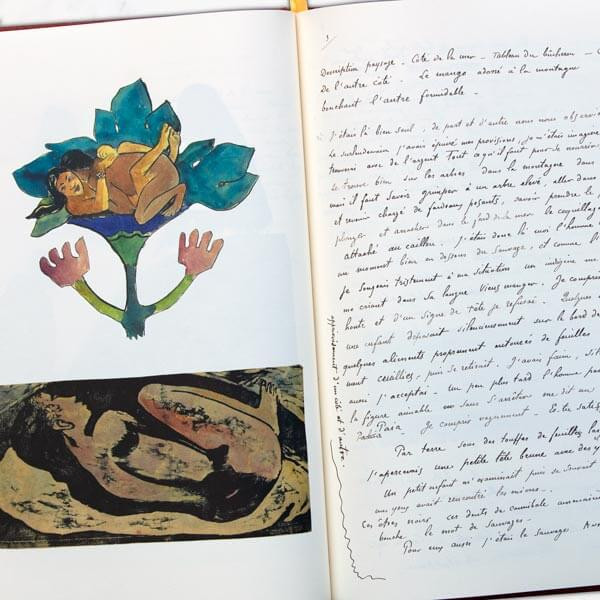 3
Description paysage - Côté de la mer - Tableau du bûcheron -
De l'autre côté - Le mango adossé à la montagne
bouchant l'autre formidable -
J'étais là bien seul, de part et d'autre nous nous observions
Le surlendemain j'avais épuisé mes provisions; je m'étais imaginé
avec de l'argent tout ce qu'il faut pour se nourrir
se trouve bien sur les arbres dans la montagne dans
mais il faut savoir grimper à un arbre élevé, aller dans
et revenir chargé de fardeaux pesants, savoir prendre le
plonger et arracher dans le fond de la mer le coquillage
attaché au caillou. J'étais donc là moi l'homme
au moment bien en dessous du sauvage, et comme
je songeais tristement à ma situation un indigène
me criant dans sa langue viens manger. Je compris
honte et d'un signe de tête je refusai. Quelques
une enfant déposait silencieusement sur le bord de
quelques aliments proprement entourés de feuilles
cueillies, puis se retirait. J'avais faim,
aussi j'acceptai - Un peu plus tard l'homme
la figure aimable sans s'arrêter me dit un
Païa - Je compris vaguement - Es-tu
approvisionnement d'un côté et d'autre.
Par terre sous des touffes de feuilles
J'apercevais une petite tête brune avec des
Un petit enfant m'examinait puis se sauvait
yeux avait rencontré les miens -
Ces êtres noirs, ces dents de cannibale
bouche le mot de sauvages -
Pour eux aussi j'étais le Sauvage